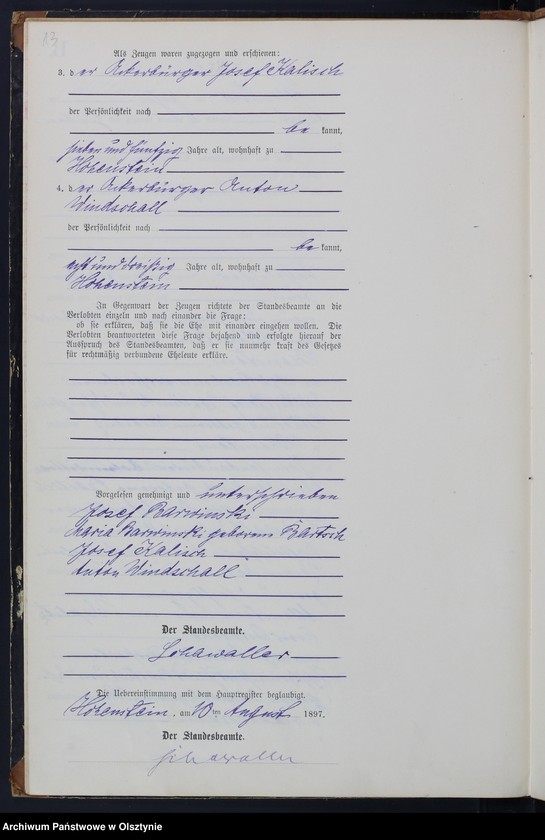 Als Zeugen waren zugezogen und erschienen:
3. der Ackerbürger Josef Kalisch
der Persönlichkeit nach
be kannt,
sieben und fünfzig Jahre alt, wohnhaft zu
Hohenstein
4. der Ackerbürger Anton
Windschall
der Persönlichkeit nach
be kannt,
acht und dreißig Jahre alt, wohnhaft zu
Hohenstein
In Gegenwart der Zeugen richtete der Standesbeamte an die
Verlobten einzeln und nach einander die Frage:
ob sie erklären, daß sie die Ehe mit einander eingehen wollen. Die
Verlobten beantworteten diese Frage bejahend und erfolgte hierauf der
Ausspruch des Standesbeamten, daß er sie nunmehr kraft des Gesetzes
für rechtmäßig verbundene Eheleute erkläre.
Vorgelesen genehmigt und unterschrieben
Josef Barwinski
Maria Barwinski geborene Bartsch
Josef Kalisch
Anton Windschall
Der Standesbeamte.
Schawaller
Die Uebereinstimmung mit dem Hauptregister beglaubigt.
Hohenstein, am 10ten August 1897.
Der Standesbeamte.
Schawaller
Archiwum Państwowe w Olsztynie